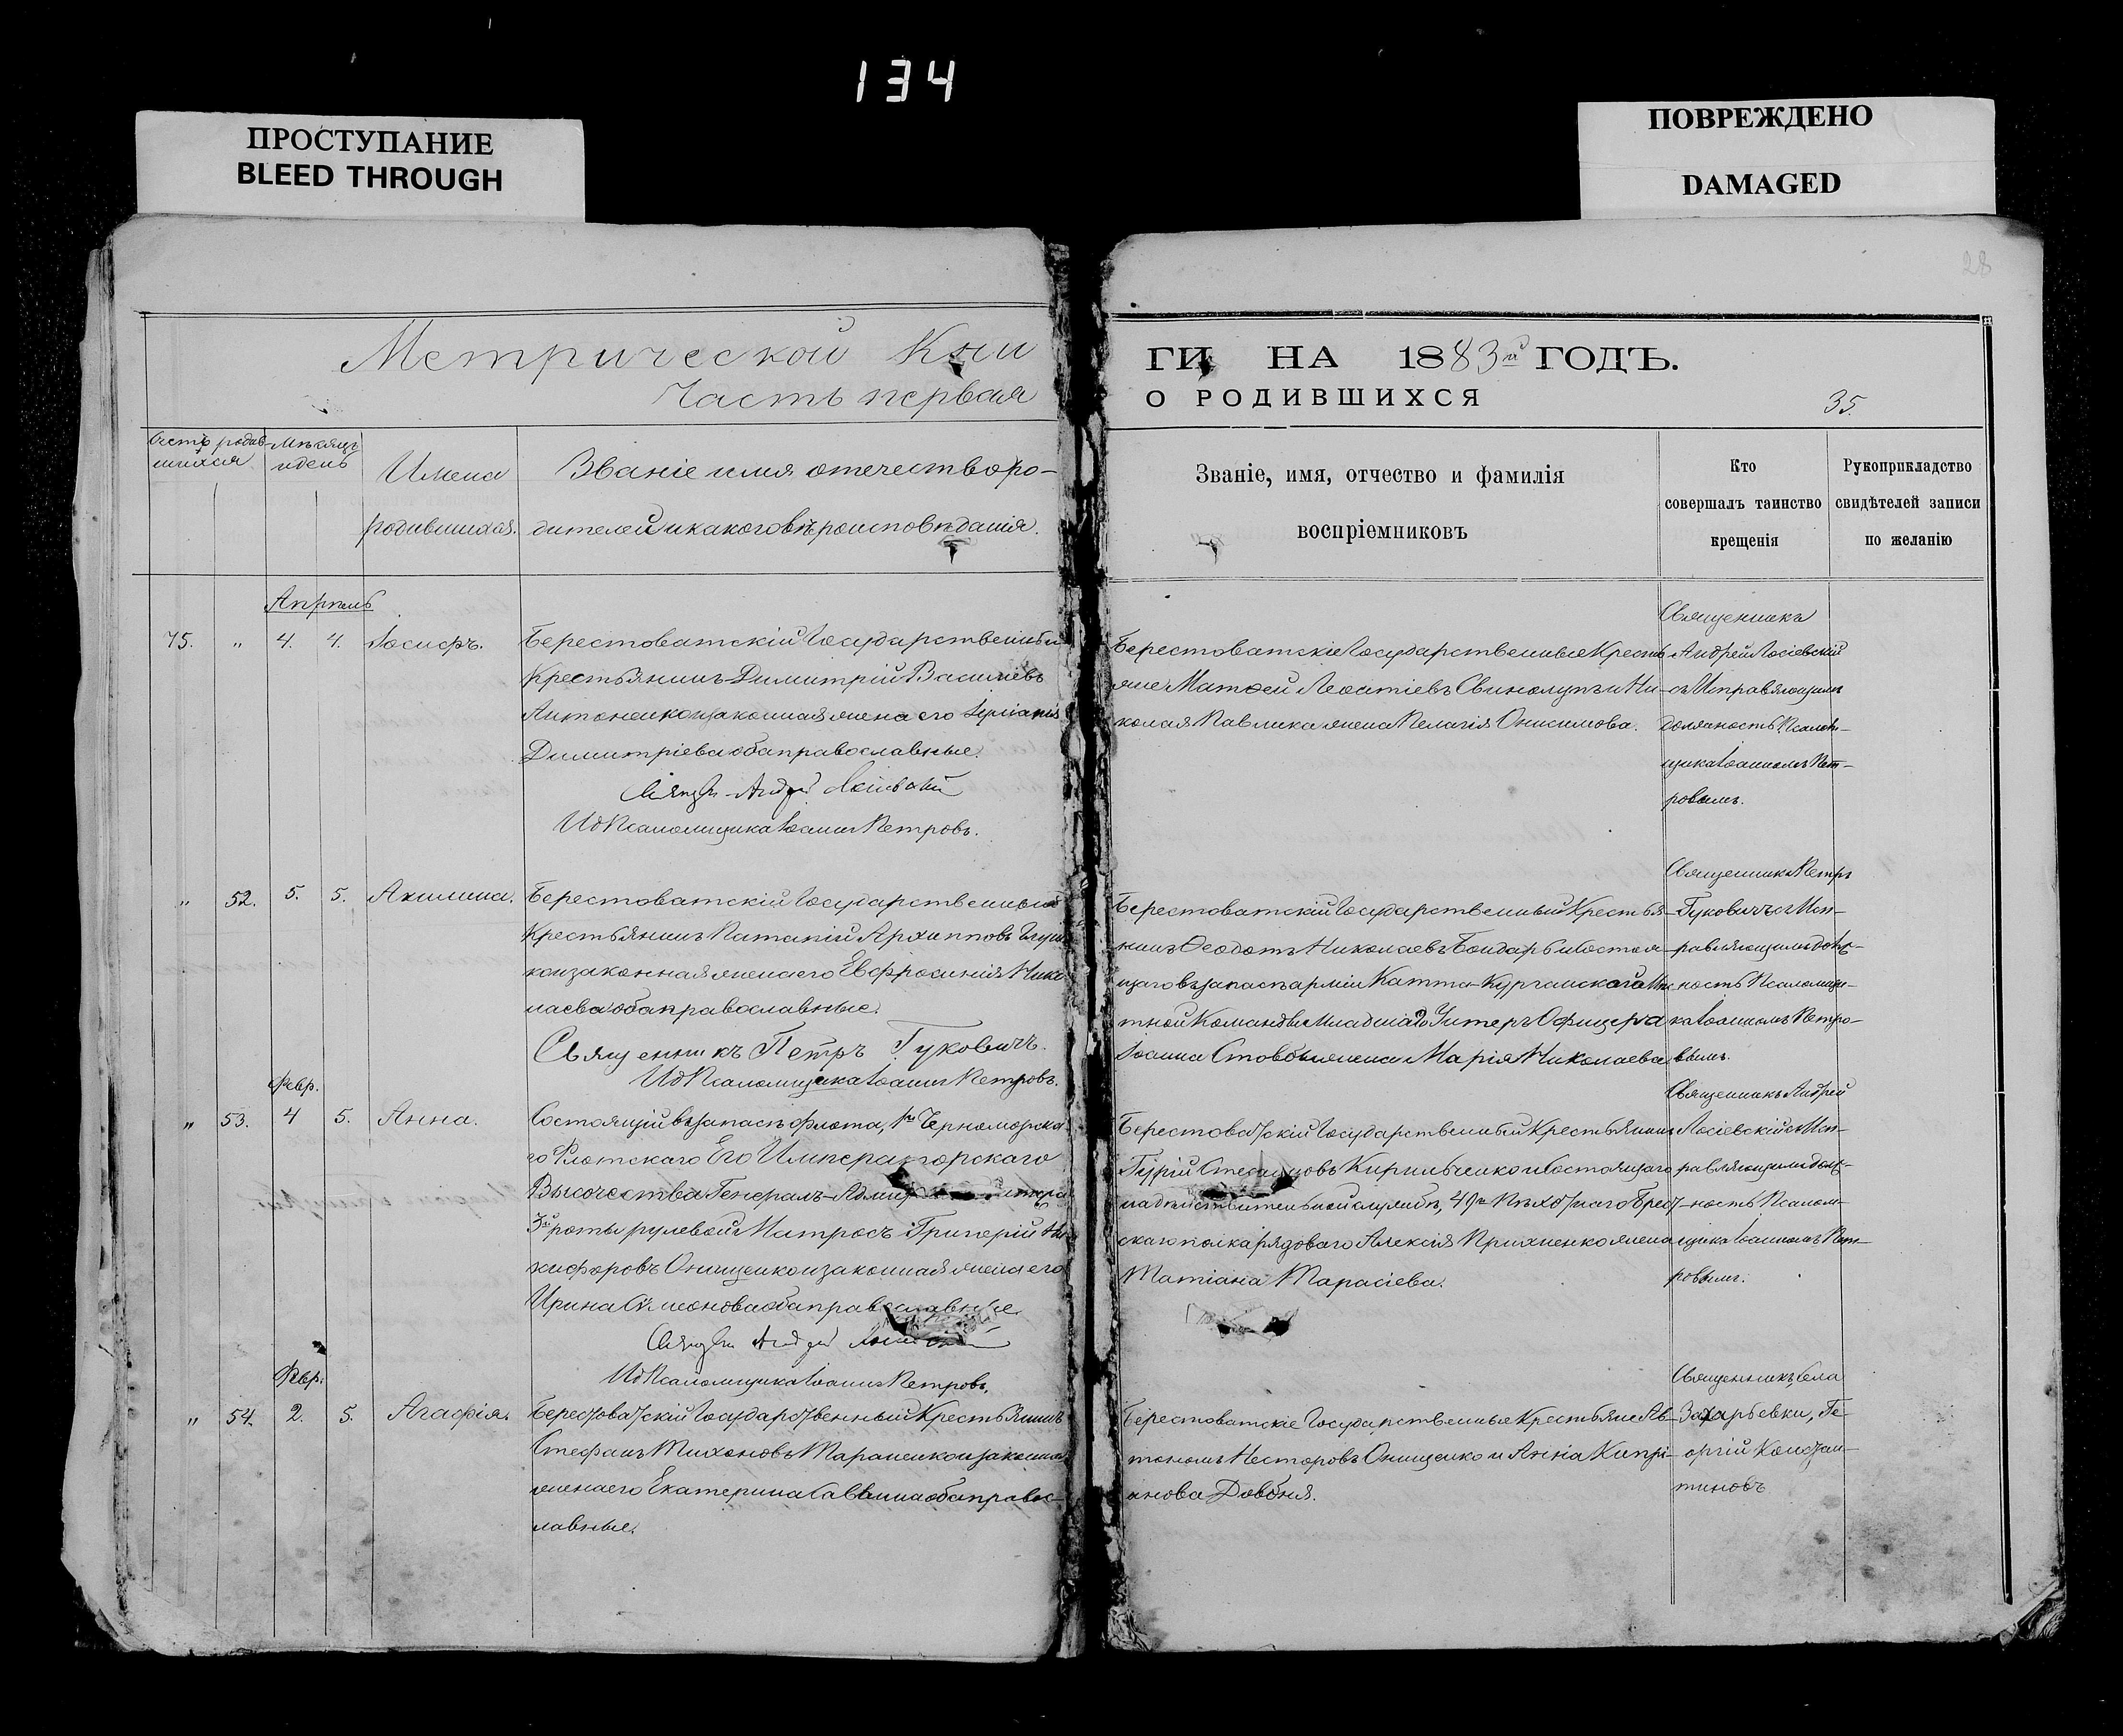 134
ПРОСТУПАНИЕ
BLEED THROUGH
ПОВРЕЖДЕНО
DAMAGED
28
Метрической Кни
ГИ НА 1883й ГОДЪ.
Часть первая
О РОДИВШИХСЯ
35.
Счетъ родив-
шихся
Мѣсяцъ
и день
Имена
родившихся.
Званіе имя отечество ро-
дителей и какого вѣроисповѣданія.
Званіе, имя, отчество и фамилія
воспріемниковъ
Кто
совершалъ таинство
крещенія
Рукоприкладство
свидѣтелей записи
по желанію
Апрѣль
75. " 4. 4. Іосифъ.
Берестоватскій Государственный
Крестьянинъ Димитрій Василіевъ
Антоненко и законная жена его
Димитріева оба православные.
Священ. Андрей Лосіевскій
ИдПсаломщика Іоаннъ Петровъ.
Берестоватскіе Государственные Кресть
яне Матѳей Леонтіевъ Свинолупъ и Ни-
колая Павлика жена Пелагія Онисимова.
Священникъ
Андрей Лосіевскій
съ Исправляющимъ
должность Псалом-
щика Іоанномъ Пет-
ровымъ.
" 52. 5. 5. Акилина.
Берестоватскій Государственный
Крестьянинъ Патапій Архипповъ
ко и законная жена его Евфросинія Нико
лаева оба православные.
Священникъ Петръ Гуковичъ.
ИдПсаломщика Іоаннъ Петровъ.
Берестоватскій Государственный Крестья-
нинъ Ѳеодотъ Николаевъ Бондарь и Состоя-
щаго въ запасѣ арміи Катта-Курганской Мѣс
тной Команды Младшаго Унтеръ Офицера
Іоанна Стовбы жена Марія Николаева
Священник Петръ
Гуковичъ съ Исп-
равляющимъ долж-
ность Псаломщи-
ка Іоанномъ Петро-
вымъ.
Февр.
" 53. 4 5. Анна.
Состоящій въ запасѣ флота, 1го Черноморска
го Флотскаго Его Императорскаго
Высочества Генералъ-Адмир
3й роты рулевой Матросъ Григорій Ни
кифоровъ Онищенко и законная жена его
Ирина Симеонова оба православные
Священ. Андрей Лосіевскій
ИдПсаломщика Іоаннъ Петровъ.
Берестоватскій Государственный Крестьянинъ
Гурій Стефановъ Кирильченко и Состоящаго
на дѣйствительной службѣ, 49го Пѣхотнаго Брест
скаго полка рядоваго Алексія Прихненко жена
Татіана Тарасіева.
Священникъ Андрей
Лосіевскій съ Исп-
равляющимъ долж-
ность Псалом-
щика Іоанномъ Пет-
ровымъ.
Февр.
" 54. 2. 5. Агафія.
Берестоватскій Государственный Крестьянинъ
Стефанъ Тихоновъ Тараненко и законная
жена его Екатерина Саввина оба правос-
лавные.
Берестоватскіе Государственные Крестьяне Ав-
тономъ Несторовъ Онищенко и Анна Капрі-
анова Довбня.
Священникъ, села
Захарьевки, Ге-
оргій Констан-
тиновъ